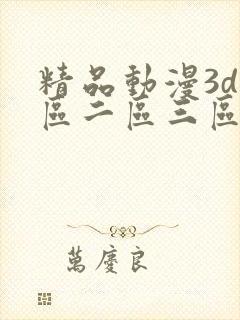 精品動漫3d
區二區三區
萬慶良